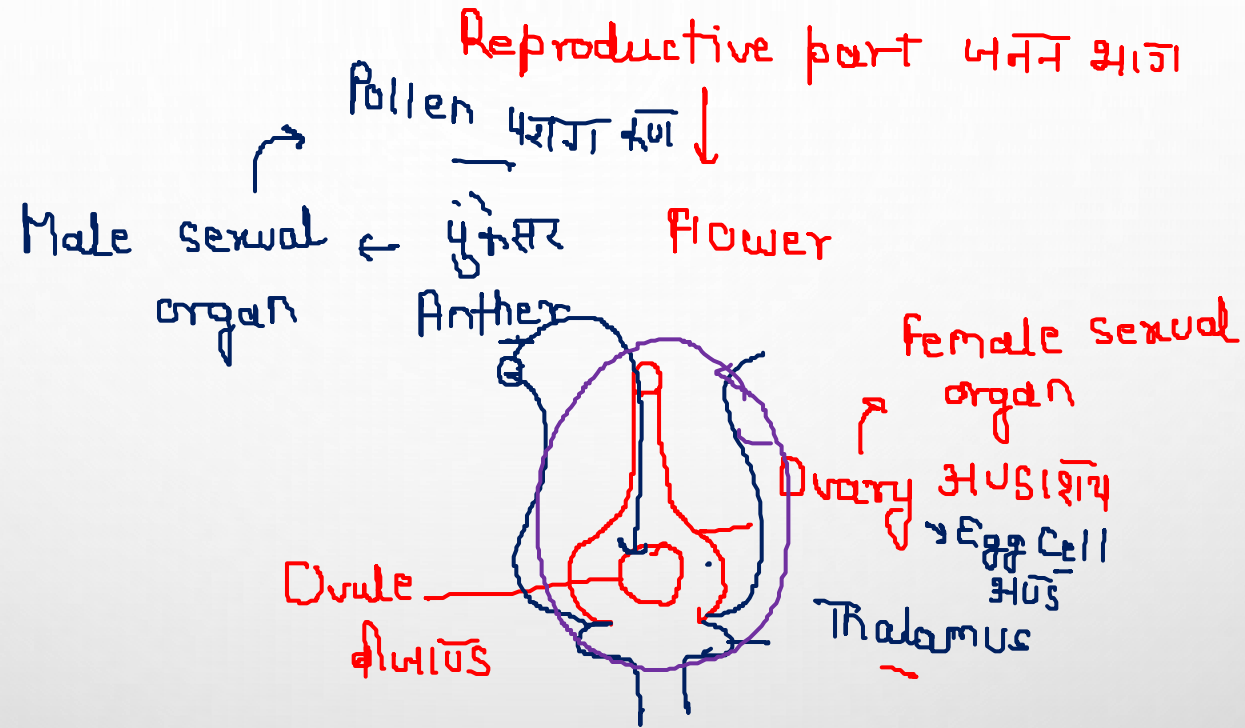 Reproductive part जनन भाग
Pollen परागकण
Male sexual organ ← पुंकेसर
Anther
Flower
Female sexual organ
Ovary अण्डाशय
Egg Cell
अण्ड
Ovule
बीजाण्ड
Thalamus